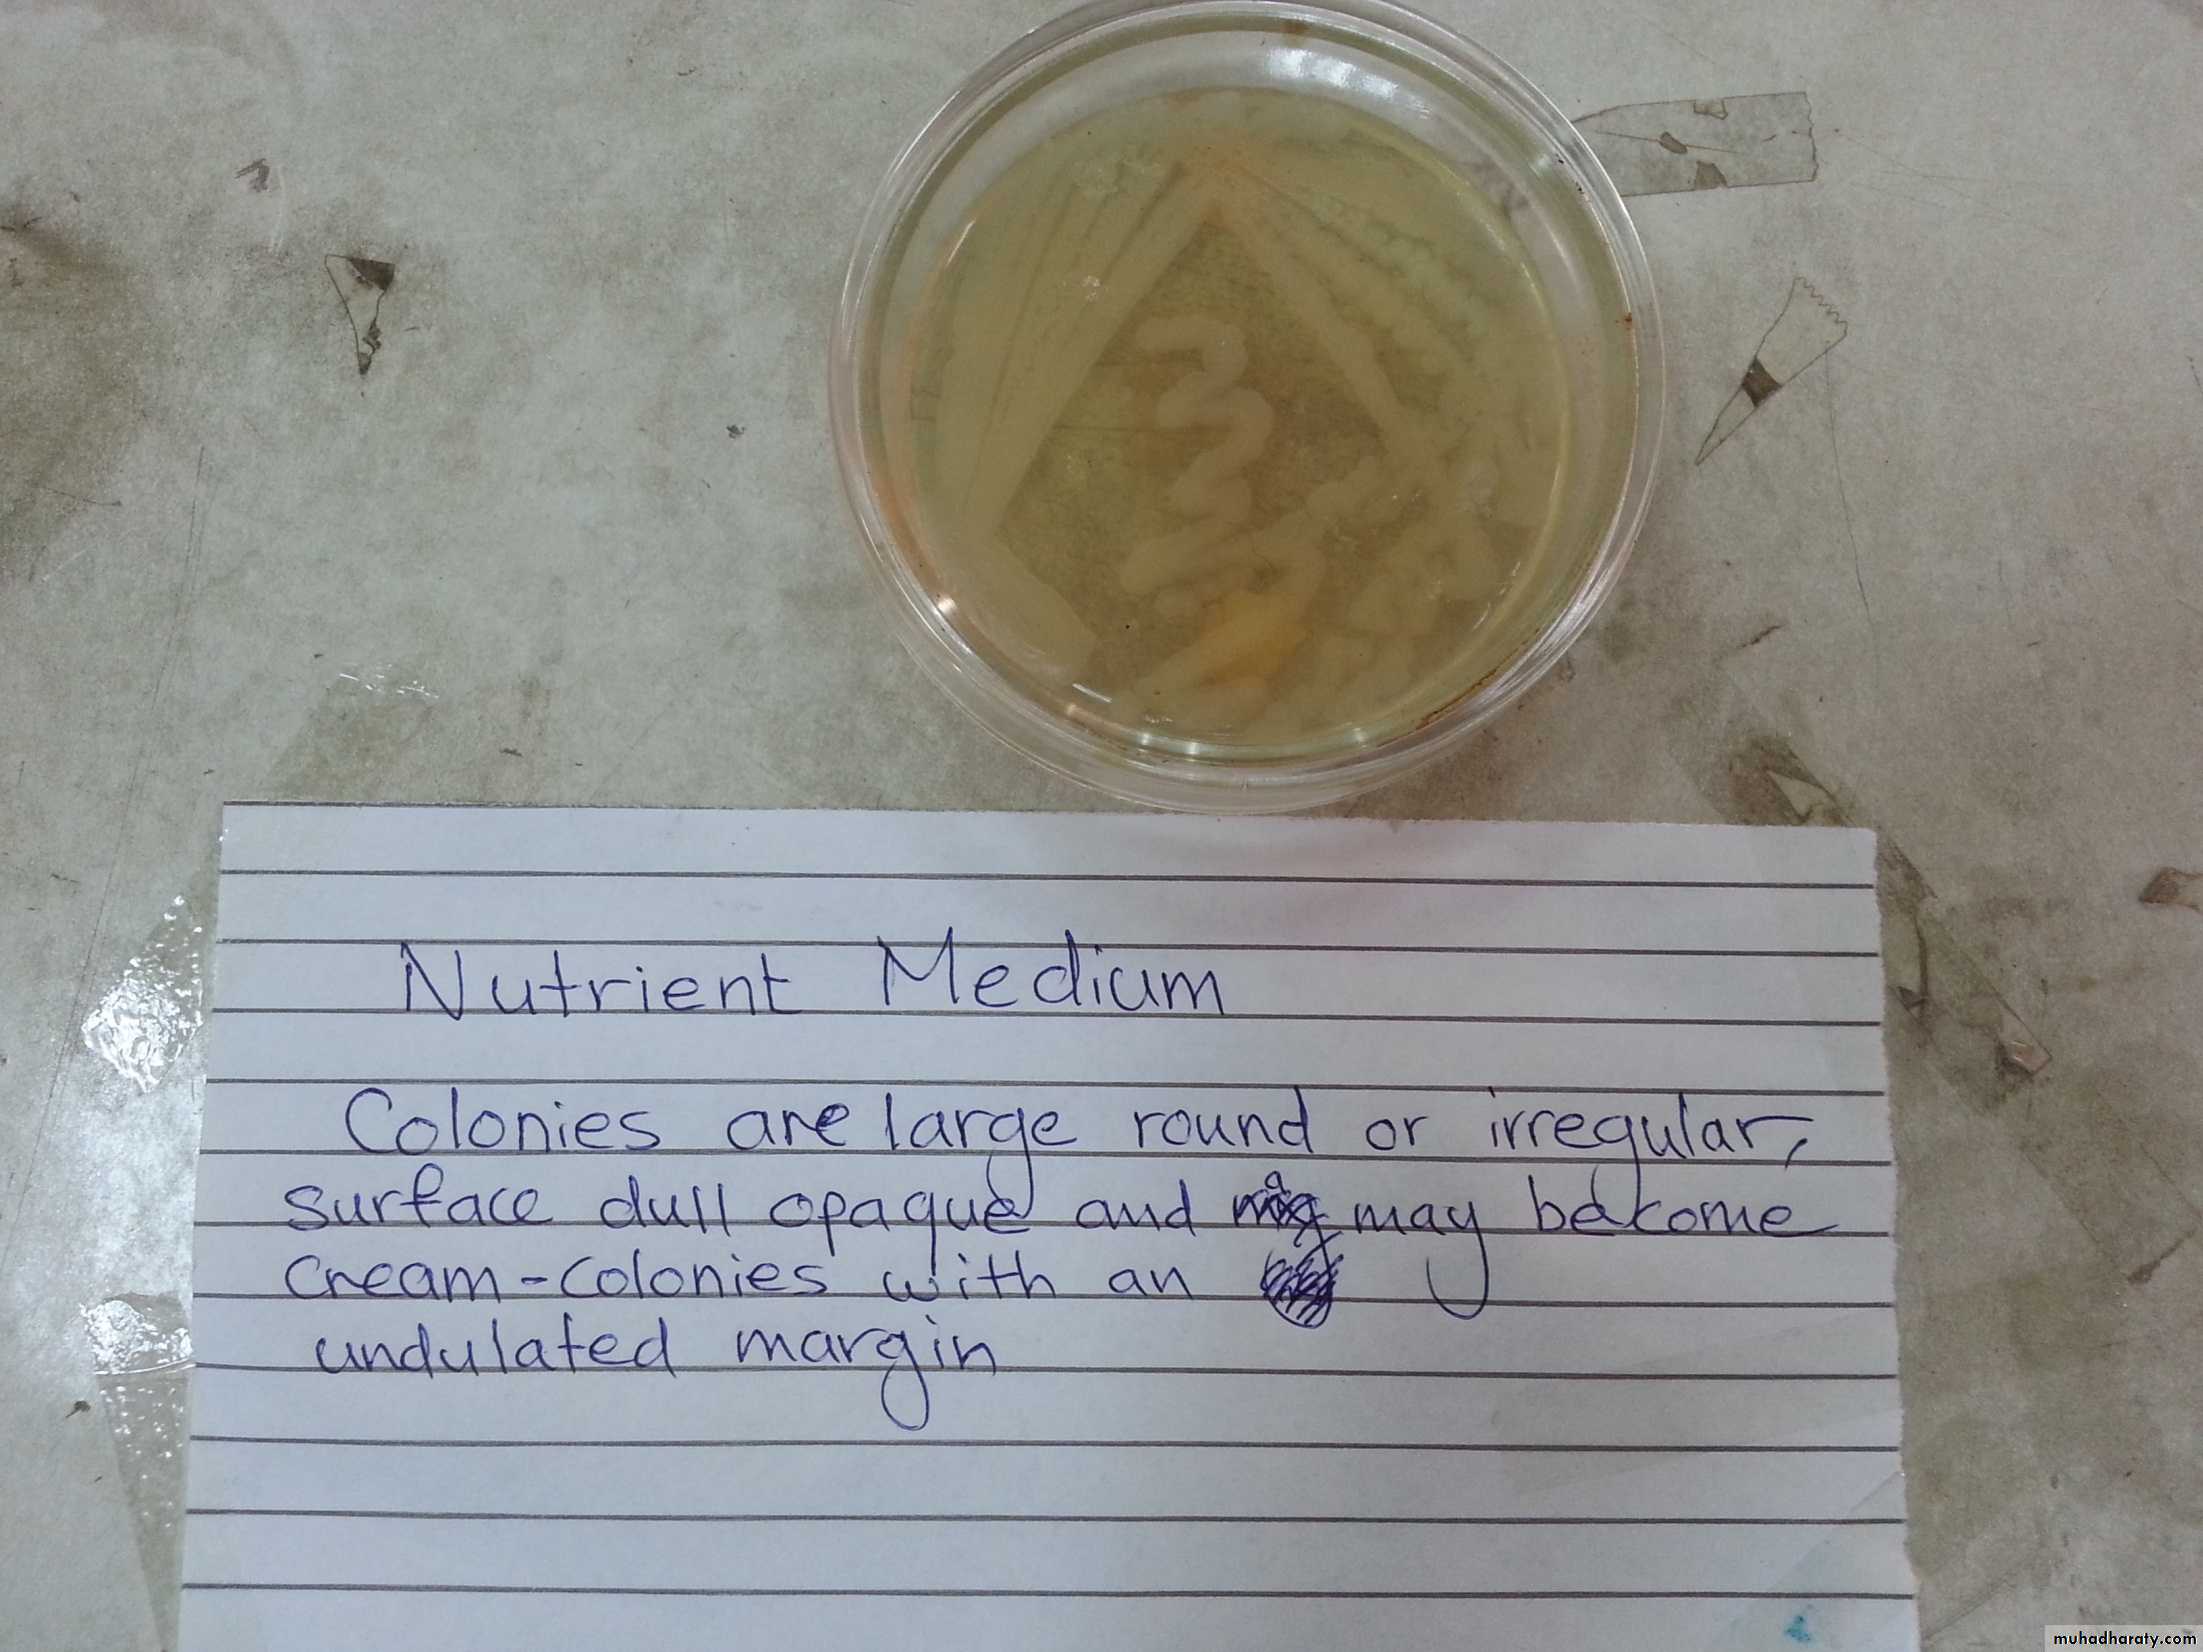 Nutrient Medium
Colonies are large round or irregular,
surface dull opaque and may become
cream-colonies with an
undulated margin
muhadharaty.com